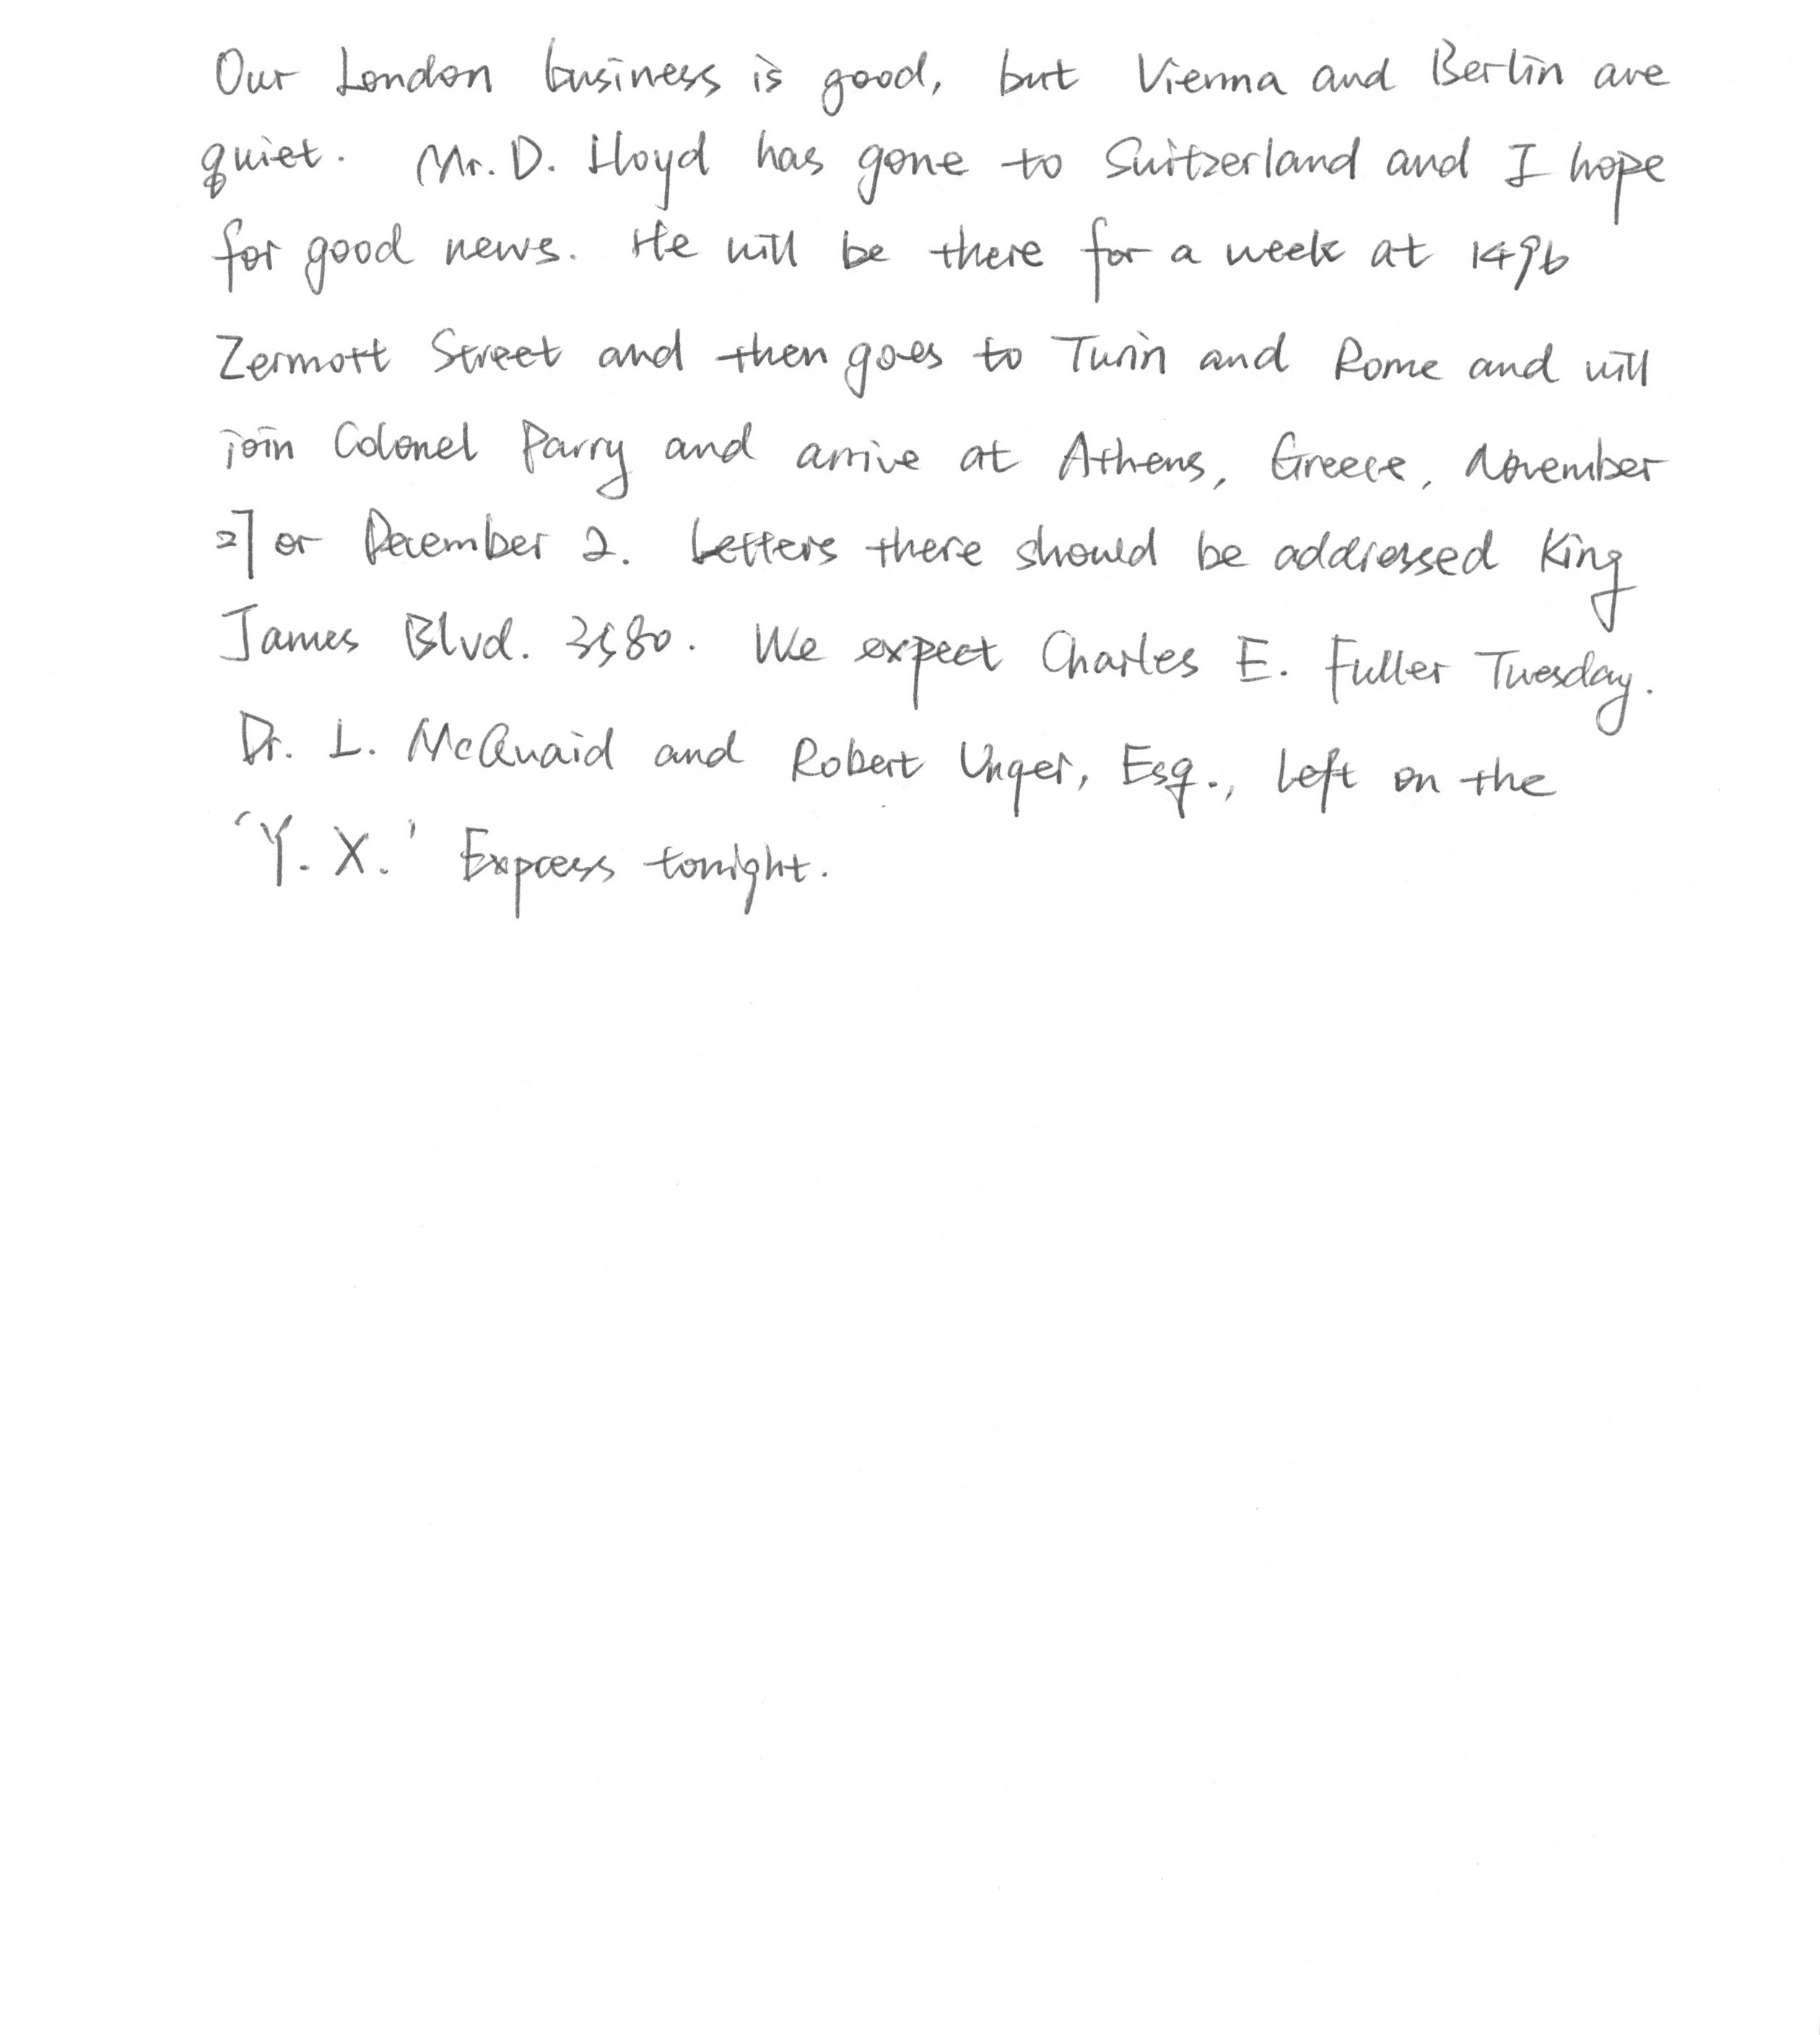 Our London business is good, but Vienna and Berlin are
quiet. Mr. D. Lloyd has gone to Switzerland and I hope
for good news. He will be there for a week at 1496
Zermott Street and then goes to Turin and Rome and will
join Colonel Parry and arrive at Athens, Greece, November
27 or December 2. Letters there should be addressed King
James Blvd. 3580. We expect Charles E. Fuller Tuesday.
Dr. L. McQuaid and Robert Unger, Esq., left on the
'Y. X.' Express tonight.